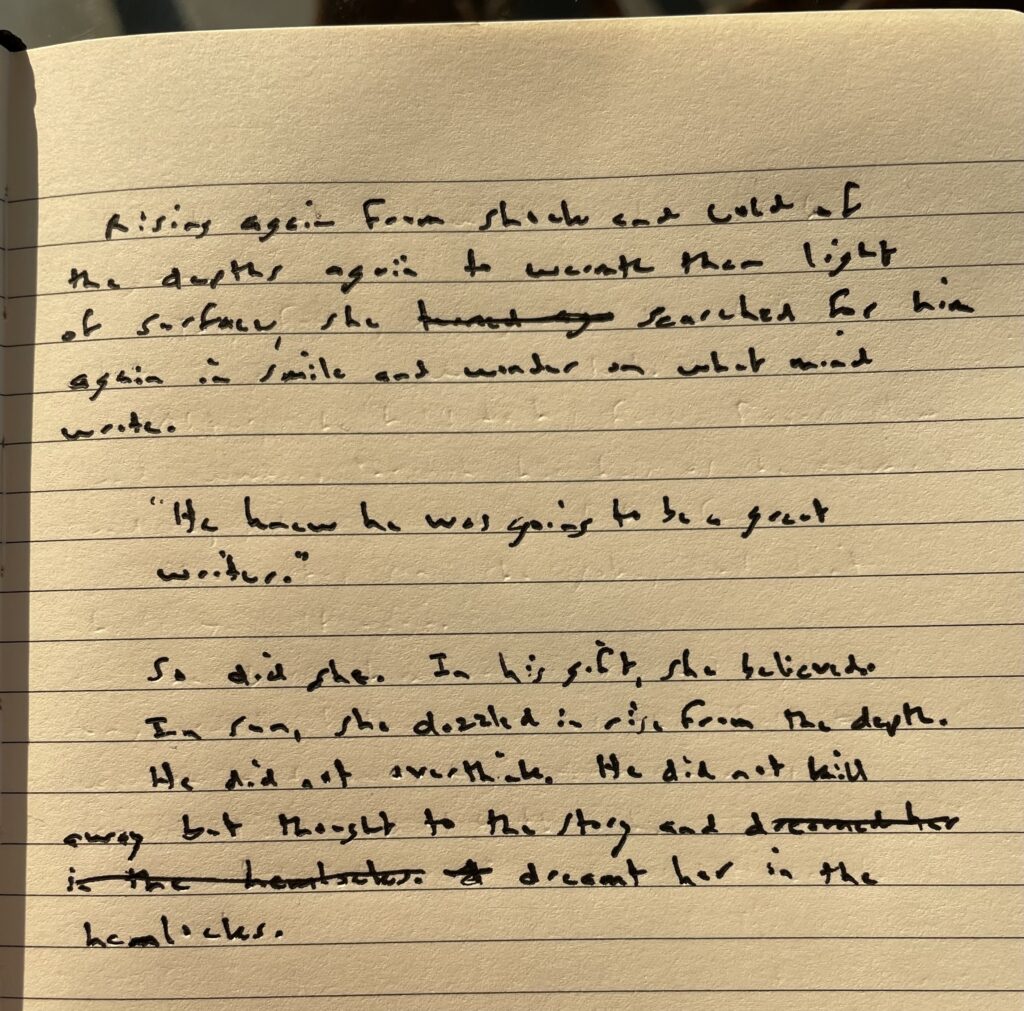 Rising again from shock and cold of
the depths again to warmth then light
of surface, she turned searched for him
again in smile and wonder on what mind
wrote.
"He knew he was going to be a great
writer."
So did she. In his gift, she believed.
In sun, she dazzled in rise from the depth.
He did not overthink. He did not kill
away but thought to the story and dreamed her
in the hemlocks. dreamt her in the
hemlocks.